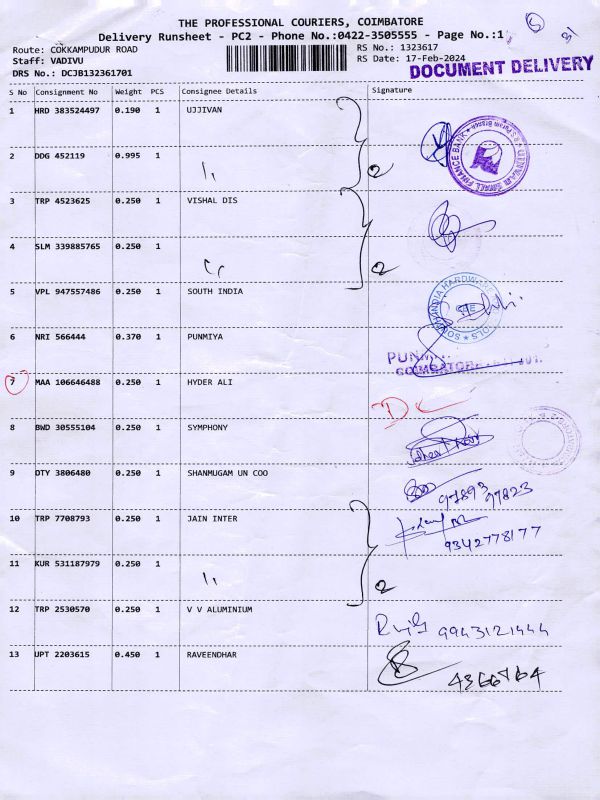 THE PROFESSIONAL COURIERS, COIMBATORE
Delivery Runsheet - PC2 - Phone No.:0422-3505555 - Page No.:1
Route: COKKAMPUDUR ROAD RS No.: 1323617
Staff: VADIVU RS Date: 17-Feb-2024
DRS No.: DCJB132361701
DOCUMENT DELIVERY
S No Consignment No Weight PCS Consignee Details Signature
1 HRD 383524497 0.190 1 UJJIVAN
2 DDG 452119 0.995 1 ,, 2
3 TRP 4523625 0.250 1 VISHAL DIS
4 SLM 339885765 0.250 1 ,, 2
5 VPL 947557486 0.250 1 SOUTH INDIA
6 NRI 566444 0.370 1 PUNMIYA
7 MAA 106646488 0.250 1 HYDER ALI
8 BWD 30555104 0.250 1 SYMPHONY
9 DTY 3806480 0.250 1 SHANMUGAM UN COO 97893 97823
10 TRP 7708793 0.250 1 JAIN INTER 9342778177
11 KUR 531187979 0.250 1 ,, 2
12 TRP 2530570 0.250 1 V V ALUMINIUM 9943121444
13 UPT 2203615 0.450 1 RAVEENDHAR